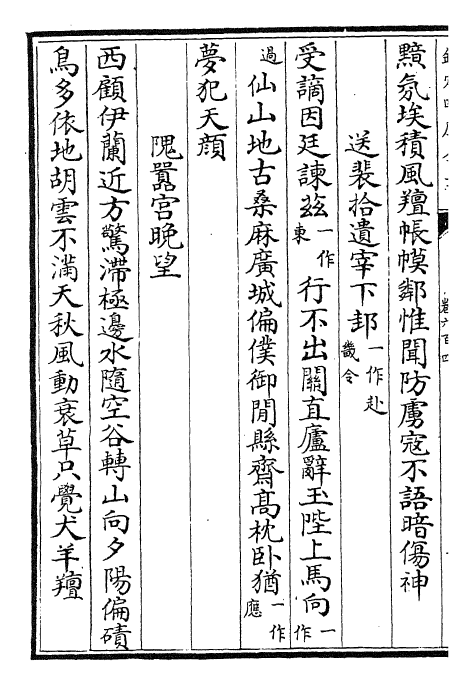 黯氛埃積風羶帳幙鄰惟聞防虜寇不語暗傷神
送裴拾遺宰下邽一作赴畿令
受謫因廷諫兹一作東行不出關直廬辭玉陛上馬向一作
過仙山地古桑麻廣城偏僕御閒縣齋髙枕卧猶一作應
夢犯天顔
隗囂宫晚望
西顧伊蘭近方驚滯極邊水隨空谷轉山向夕陽偏磧
鳥多依地胡雲不滿天秋風動衰草只覺犬羊羶
卷六百四